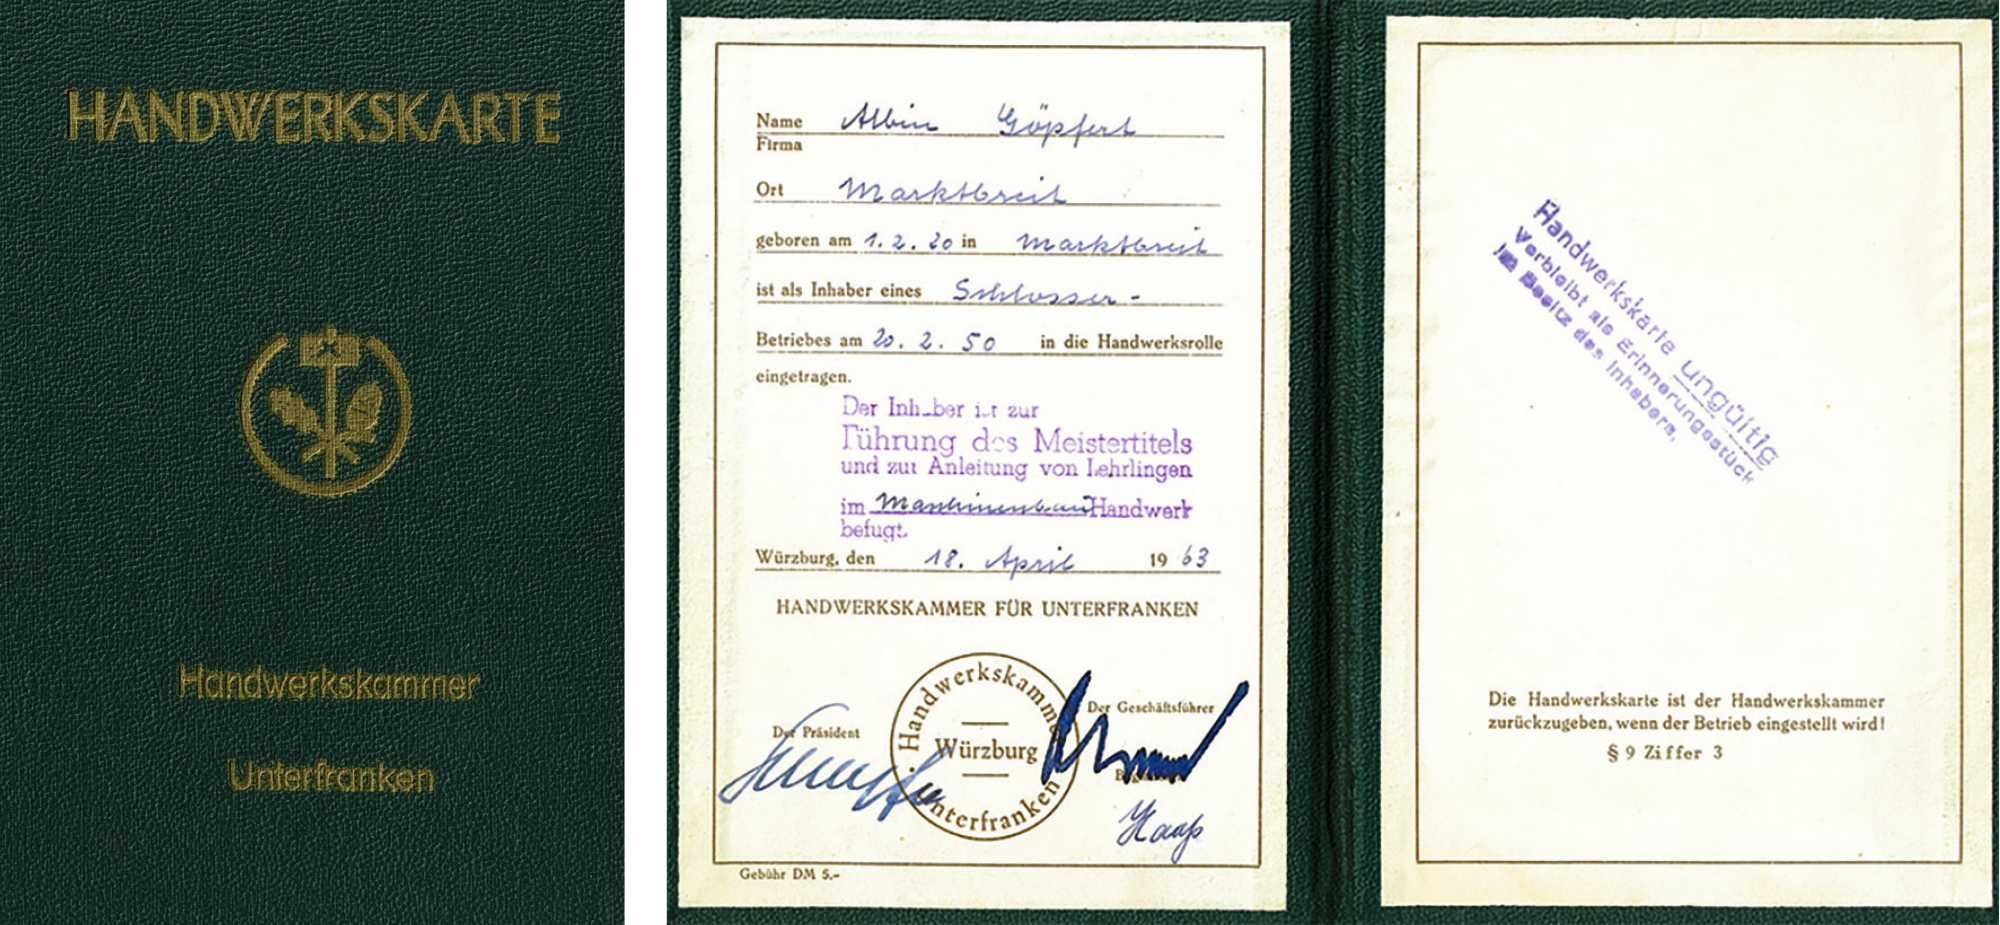 HANDWERKSKARTE
Handwerkskammer
Unterfranken
Name Albin Göpfert
Firma
Ort Marktbreit
geboren am 1. 2. 20 in Marktbreit
ist als Inhaber eines Schlosser-
Betriebes am 20. 2. 50 in die Handwerksrolle
eingetragen.
Der Inhaber ist zur
Führung des Meistertitels
und zur Anleitung von Lehrlingen
im Maschinenbau Handwerk
befugt.
Würzburg, den 18. April 1963
HANDWERKSKAMMER FÜR UNTERFRANKEN
Handwerkskammer
Würzburg
Unterfranken
Der Präsident
Der Geschäftsführer
Haaß
Gebühr DM 5.-
Handwerkskarte ungültig
Verbleibt als Erinnerungsstück
im Besitz des Inhabers.
Die Handwerkskarte ist der Handwerkskammer
zurückzugeben, wenn der Betrieb eingestellt wird!
§ 9 Ziffer 3